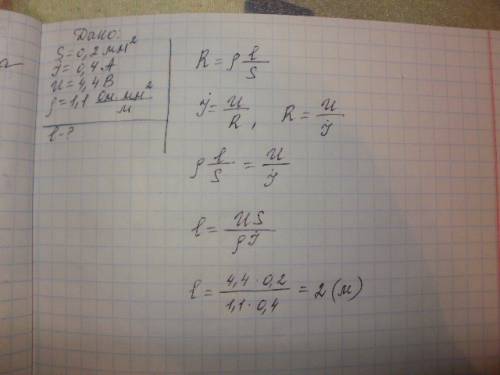 Дано:
S = 0,2 мм²
J = 0,4 А
U = 4,4 В
ρ = 1,1 Ом·мм²/м
l - ?
R = ρ l/S
J = U/R, R = U/J
ρ l/S = U/J
l = US/ρJ
l = 4,4·0,2/1,1·0,4 = 2 (м)